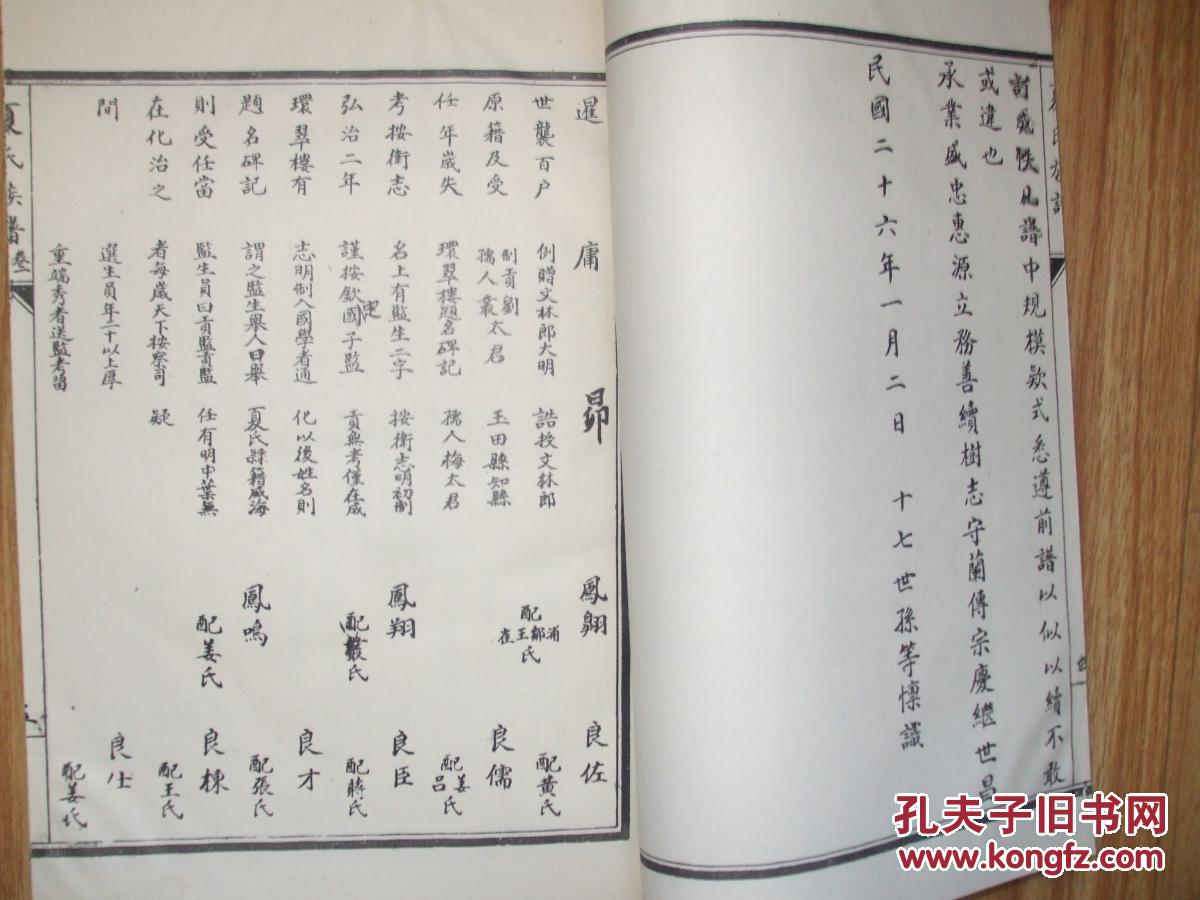 討或帙凡譜中規模欵式悉遵前譜以似以續不敢
或違也
承業盛忠惠源立務善續樹志守蘭傳宗慶繼世昌
民國二十六年一月二日 十七世孫等懍識
暹
世襲百户
原籍及受
任年歲失
考按衛志
弘治二年
環翠樓有
題名碑記
則受任當
在化治之
間
庸
例贈文林郎大明
制貢劉
孺人叢太君
環翠樓題名碑記
名上有監生二字
謹按欽國子監
史
志明制入國學者通
謂之監生舉人曰舉
監生員曰貢監貢監
者每歲天下按察司
選生員年二十以上厚
重端秀者送監考留
昴
誥授文林郎
玉田縣知縣
孺人梅太君
按衛志明初制
貢無考僅在成
化以後姓名則
夏氏隸籍威海
任有明中葉無
疑
鳳翺
配浦鄒王崔氏
鳳翔
配叢氏
鳳鳴
配姜氏
良佐
配黄氏
良儒
配姜吕氏
良臣
配蔣氏
良才
配張氏
良棟
配王氏
良仕
配姜氏
夏氏族譜
卷一
孔夫子旧书网
www.kongfz.com